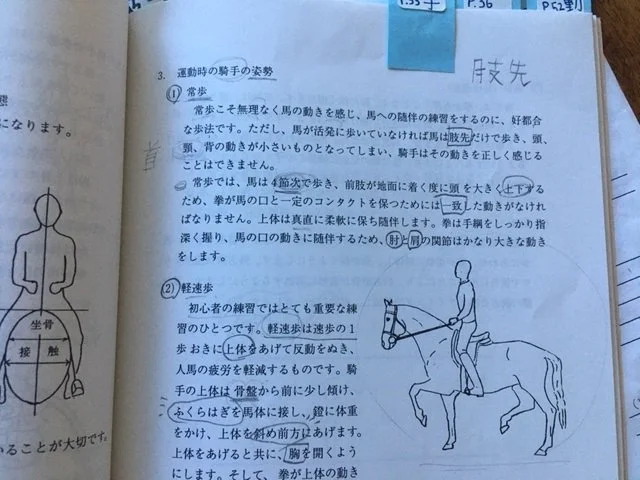 P.36
P.52
肢先
3. 運動時の騎手の姿勢
(1) 常歩
常歩こそ無理なく馬の動きを感じ、馬への随伴の練習をするのに、好都合
な歩法です。ただし、馬が活発に歩いていなければ馬は肢先だけで歩き、頭、
頸、背の動きが小さいものとなってしまい、騎手はその動きを正しく感じる
ことはできません。
常歩では、馬は4節次で歩き、前肢が地面に着く度に頭を大きく上下する
ため、拳が馬の口と一定のコンタクトを保つためには一致した動きがなけれ
ばなりません。上体は真直に柔軟に保ち随伴します。拳は手綱をしっかり指
深く握り、馬の口の動きに随伴するため、肘と肩の関節はかなり大きな動き
をします。
(2) 軽速歩
初心者の練習ではとても重要な練
習のひとつです。軽速歩は速歩の1
歩おきに上体をあげて反動をぬき、
人馬の疲労を軽減するものです。騎
手の上体は骨盤から前に少し傾け、
ふくらはぎを馬体に接し、鐙に体重
をかけ、上体を斜め前方はあげます。
上体をあげると共に、胸を開くよう
にします。そして、拳が上体の動き
態
になります。
坐骨
接 触
いることが大切です。